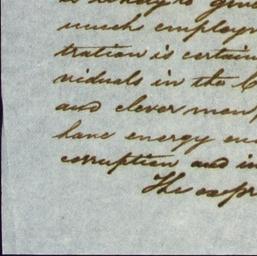 is likely to give
much employm
tration is certain
viduals in the C
and clever men,
have energy en
corruption and in
The expr